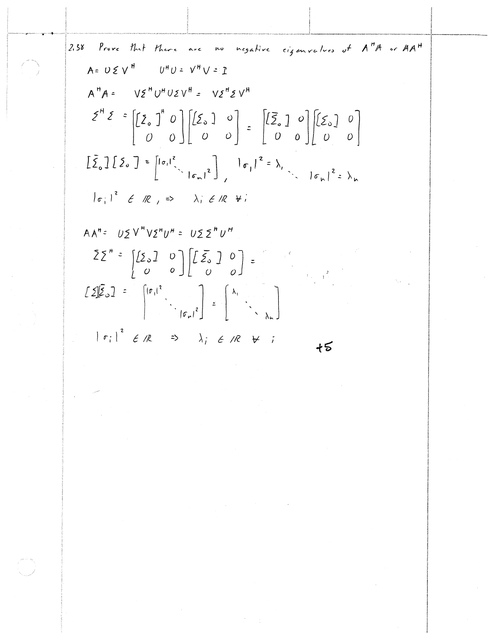 2.38 Prove that there are no negative eigenvalues of A^H A or AA^H
A = UΣV^H U^H U = V^H V = I
A^H A = VΣ^H U^H UΣV^H = VΣ^H ΣV^H
Σ^H Σ = [[Σ₀]^H 0; 0 0] [[Σ₀] 0; 0 0] = [[Σ̄₀] 0; 0 0] [[Σ₀] 0; 0 0]
[Σ̄₀][Σ₀] = [|σ₁|² ⋱ |σₙ|²], |σ₁|² = λ₁ ⋱ |σₙ|² = λₙ
|σᵢ|² ∈ ℝ, ⇒ λᵢ ∈ ℝ ∀ i
AA^H = UΣV^H VΣ^H U^H = UΣΣ^H U^H
ΣΣ^H = [[Σ₀] 0; 0 0] [[Σ̄₀] 0; 0 0] =
[Σ][Σ̄₀] = [|σ₁|² ⋱ |σₙ|²] = [λ₁ ⋱ λₙ]
|σᵢ|² ∈ ℝ ⇒ λᵢ ∈ ℝ ∀ i
+5